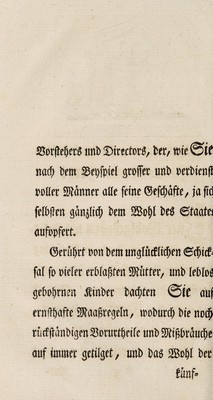 Vorstehers und Directors, der, wie Sie
nach dem Beyspiel grosser und verdienst
voller Männer alle seine Geschäfte, ja sich
selbsten gänzlich dem Wohl des Staates
aufopfert.
Gerührt von dem unglücklichen Schick-
sal so vieler erblaßten Mütter, und leblos
gebohrnen Kinder dachten Sie auf
ernsthafte Maaßregeln, wodurch die noch
rückständigen Vorurtheile und Mißbräuche
auf immer getilget, und das Wohl der
künf-